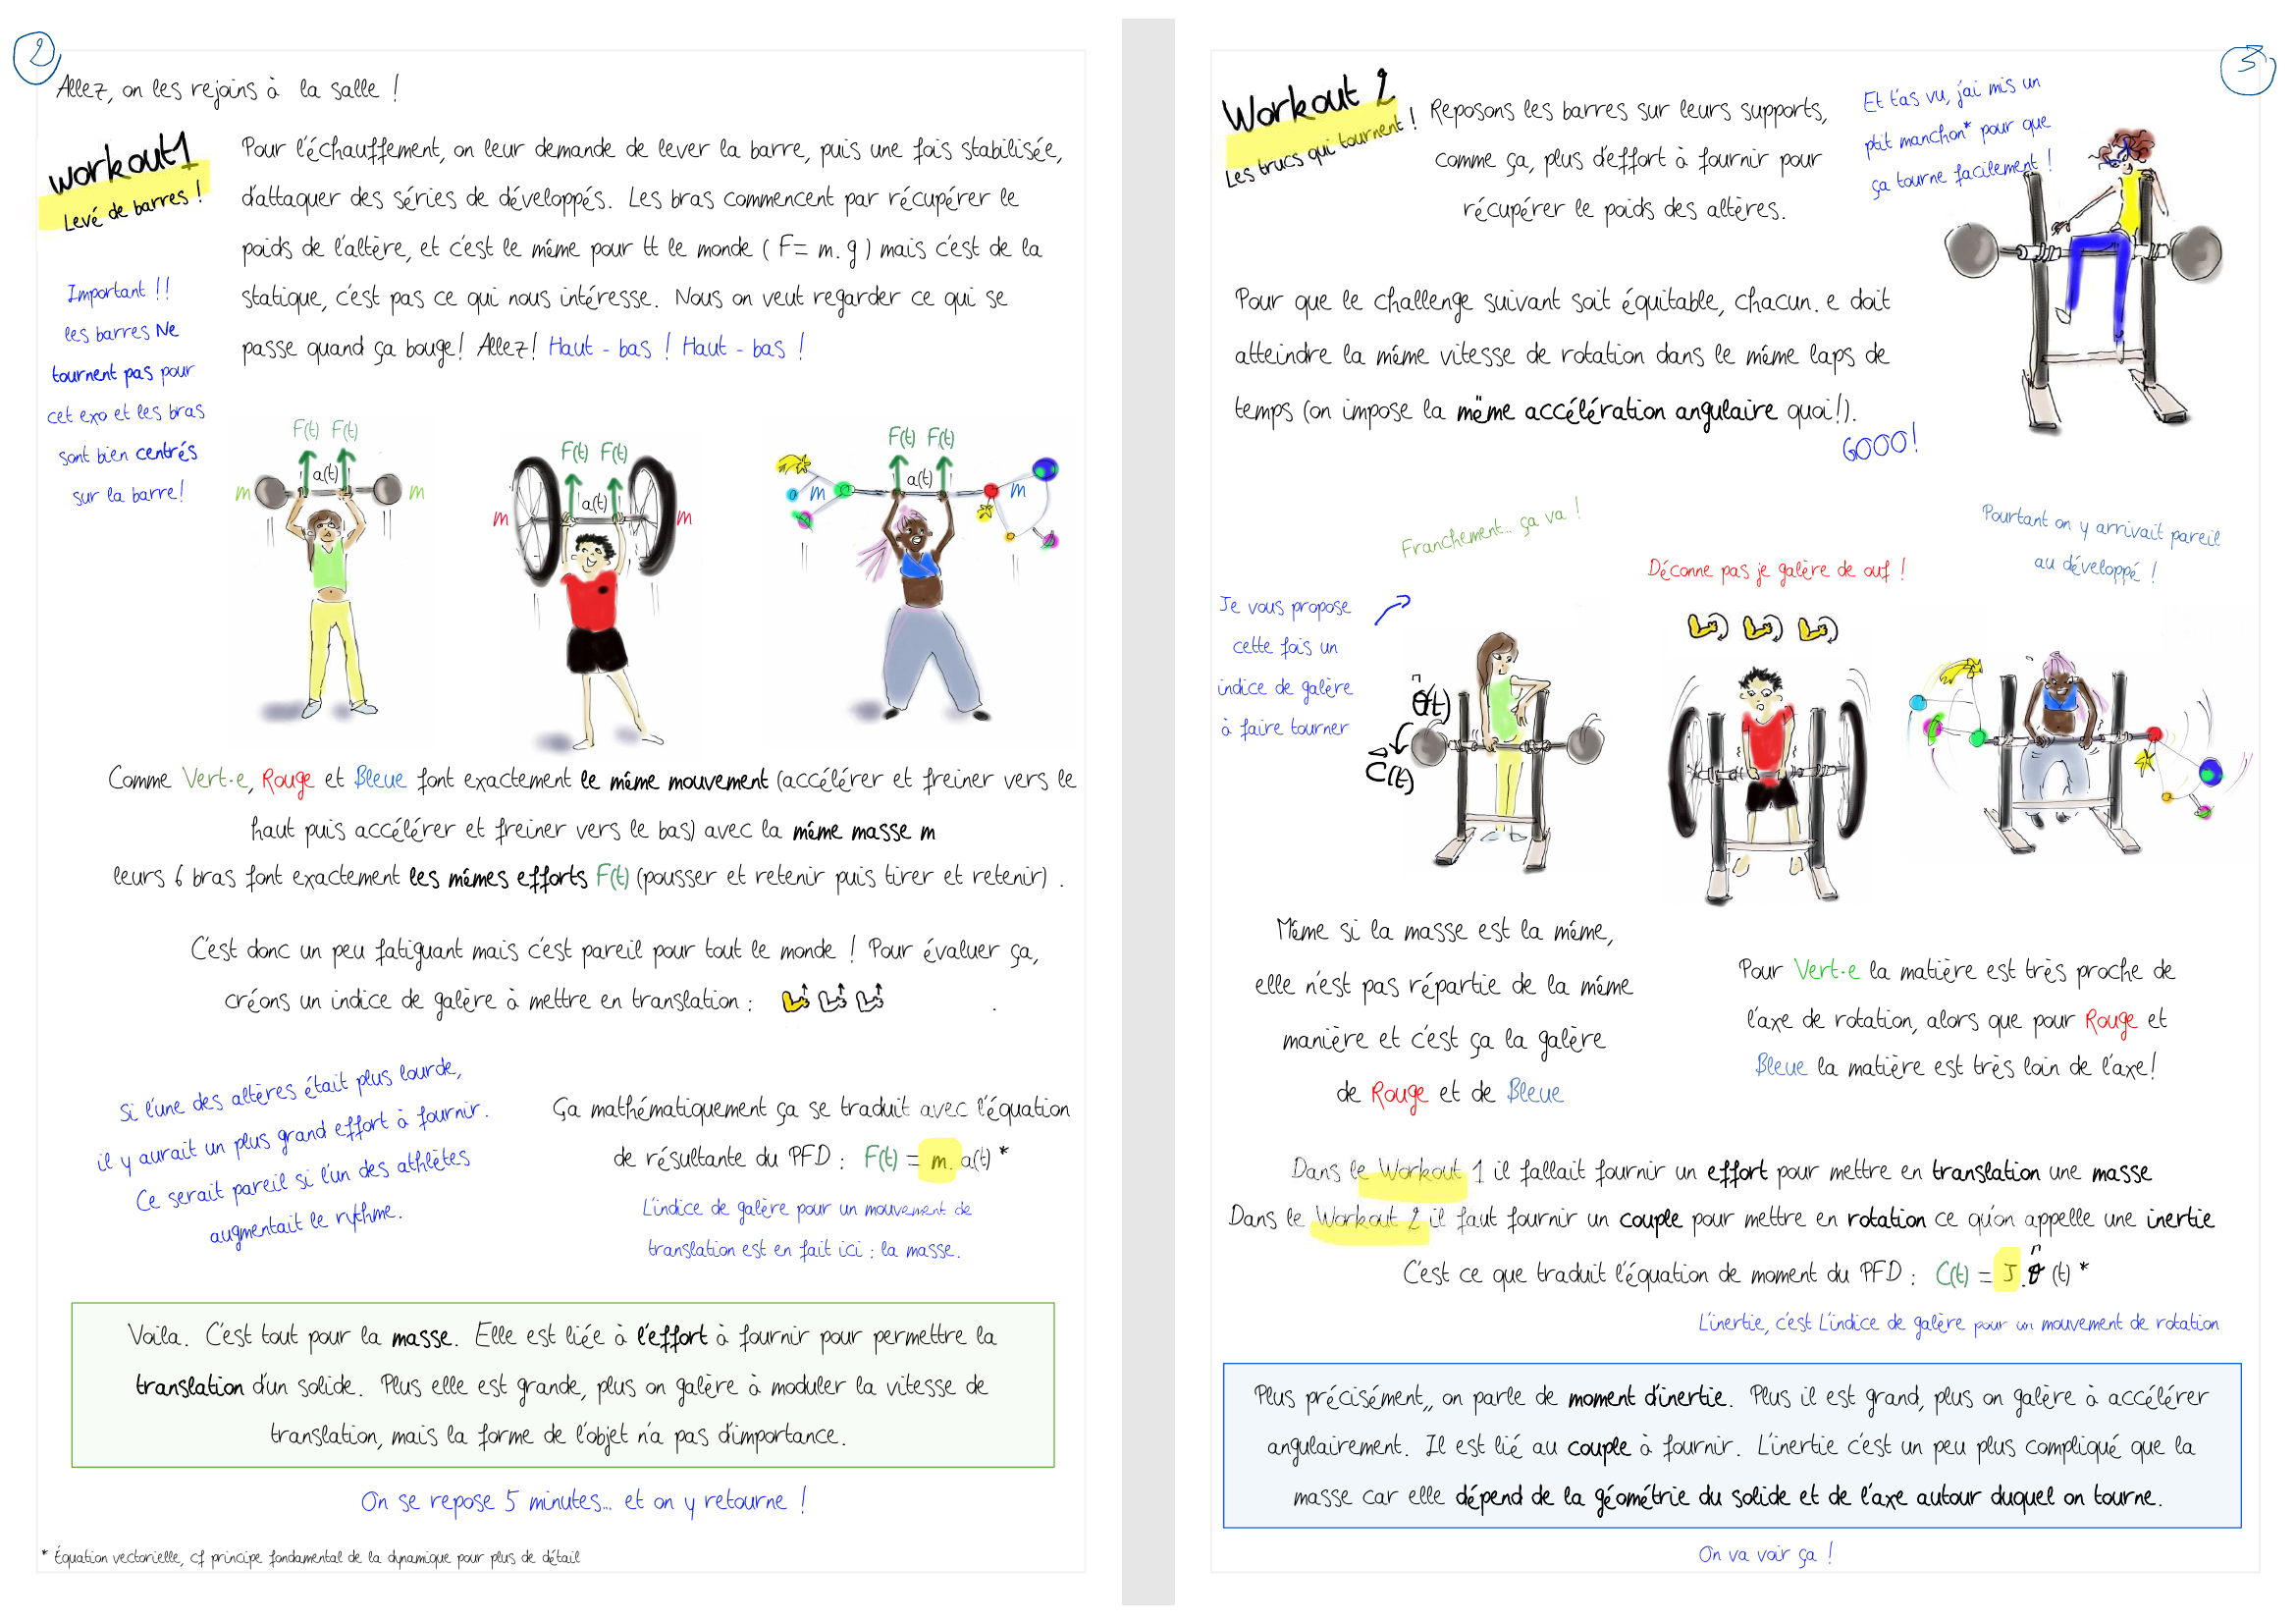 2
Allez, on les rejoins à la salle !
workout1
Levé de barres !
Pour l'échauffement, on leur demande de lever la barre, puis une fois stabilisée,
d'attaquer des séries de développés. Les bras commencent par récupérer le
poids de l'altère, et c'est le même pour tt le monde ( F= m. g ) mais c'est de la
statique, c'est pas ce qui nous intéresse. Nous on veut regarder ce qui se
passe quand ça bouge! Allez! Haut - bas ! Haut - bas !
Important !!
les barres Ne
tournent pas pour
cet exo et les bras
sont bien centrés
sur la barre!
F(t) F(t)
a(t)
m m
F(t) F(t)
a(t)
m m
F(t) F(t)
a(t)
m m
Comme Vert·e, Rouge et Bleue font exactement le même mouvement (accélérer et freiner vers le
haut puis accélérer et freiner vers le bas) avec la même masse m
leurs 6 bras font exactement les mêmes efforts F(t) (pousser et retenir puis tirer et retenir) .
C'est donc un peu fatiguant mais c'est pareil pour tout le monde ! Pour évaluer ça,
créons un indice de galère à mettre en translation :
.
Si l'une des altères était plus lourde,
il y aurait un plus grand effort à fournir.
Ce serait pareil si l'un des athlètes
augmentait le rythme.
Ça mathématiquement ça se traduit avec l'équation
de résultante du PFD : F(t) = m. a(t) *
L'indice de galère pour un mouvement de
translation est en fait ici : la masse.
Voila. C'est tout pour la masse. Elle est liée à l'effort à fournir pour permettre la
translation d'un solide. Plus elle est grande, plus on galère à moduler la vitesse de
translation, mais la forme de l'objet n'a pas d'importance.
On se repose 5 minutes... et on y retourne !
* Équation vectorielle, cf principe fondamental de la dynamique pour plus de détail
3
Workout 2
Les trucs qui tournent !
Reposons les barres sur leurs supports,
comme ça, plus d'effort à fournir pour
récupérer le poids des altères.
Et t'as vu, j'ai mis un
ptit manchon* pour que
ça tourne facilement !
Pour que le challenge suivant soit équitable, chacun. e doit
atteindre la même vitesse de rotation dans le même laps de
temps (on impose la mëme accélération angulaire quoi!).
GOOO!
Franchement... ça va !
Déconne pas je galère de ouf !
Pourtant on y arrivait pareil
au développé !
Je vous propose
cette fois un
indice de galère
à faire tourner
θ̈(t)
C(t)
Même si la masse est la même,
elle n'est pas répartie de la même
manière et c'est ça la galère
de Rouge et de Bleue
Pour Vert·e la matière est très proche de
l'axe de rotation, alors que pour Rouge et
Bleue la matière est très loin de l'axe!
Dans le Workout 1 il fallait fournir un effort pour mettre en translation une masse
Dans le Workout 2 il faut fournir un couple pour mettre en rotation ce qu'on appelle une inertie
C'est ce que traduit l'équation de moment du PFD : C(t) = J. θ̈ (t) *
L'inertie, c'est L'indice de galère pour un mouvement de rotation
Plus précisément,, on parle de moment d'inertie. Plus il est grand, plus on galère à accélérer
angulairement. Il est lié au couple à fournir. L'inertie c'est un peu plus compliqué que la
masse car elle dépend de la géométrie du solide et de l'axe autour duquel on tourne.
On va voir ça !